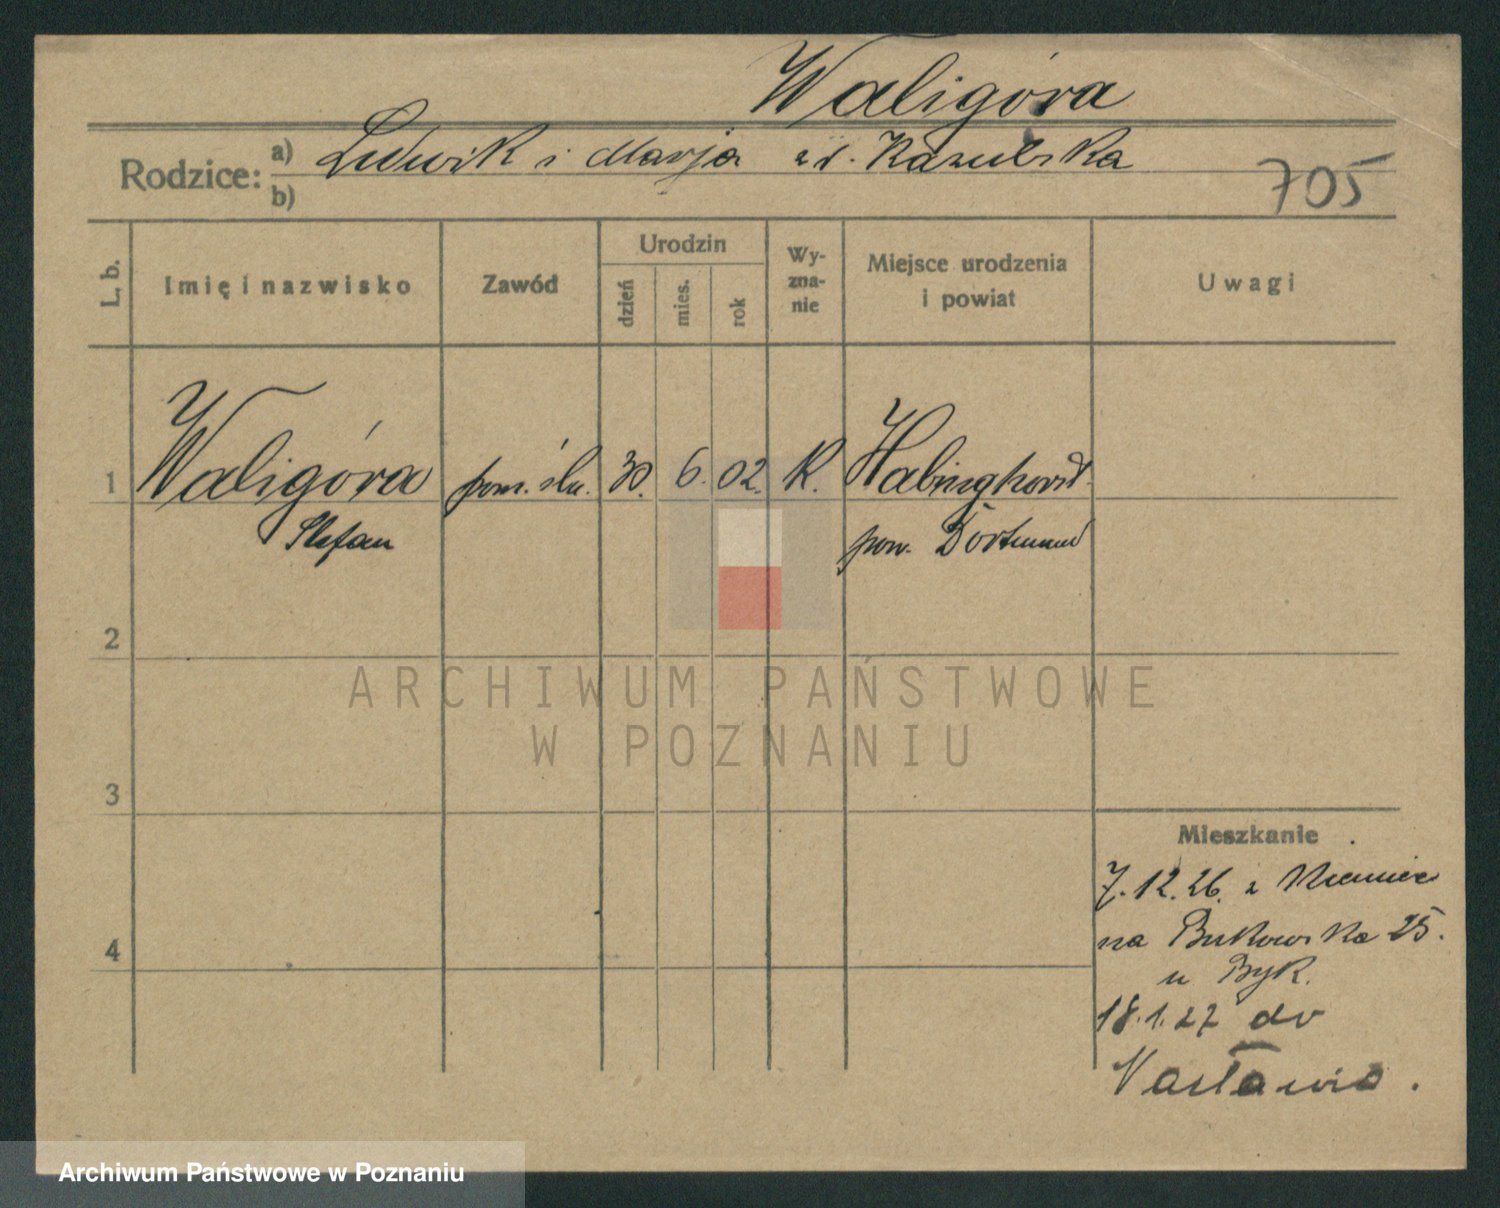 Waligóra
Rodzice: a) Ludwik i Marja zd. Kazubska
b)
705
L. b.
Imię i nazwisko
Zawód
Urodzin
dzień
mies.
rok
Wy-
zna-
nie
Miejsce urodzenia
i powiat
Uwagi
1 Waligóra pom. ślu. 30. 6. 02. K. Habinghorst
Stefan pow. Dortmund
2
ARCHIWUM PAŃSTWOWE
W POZNANIU
3
Mieszkanie
7.12.26. z Niemiec
na Bukowska 25.
u Byk.
4
18.1.27 do
Archiwum Państwowe w Poznaniu